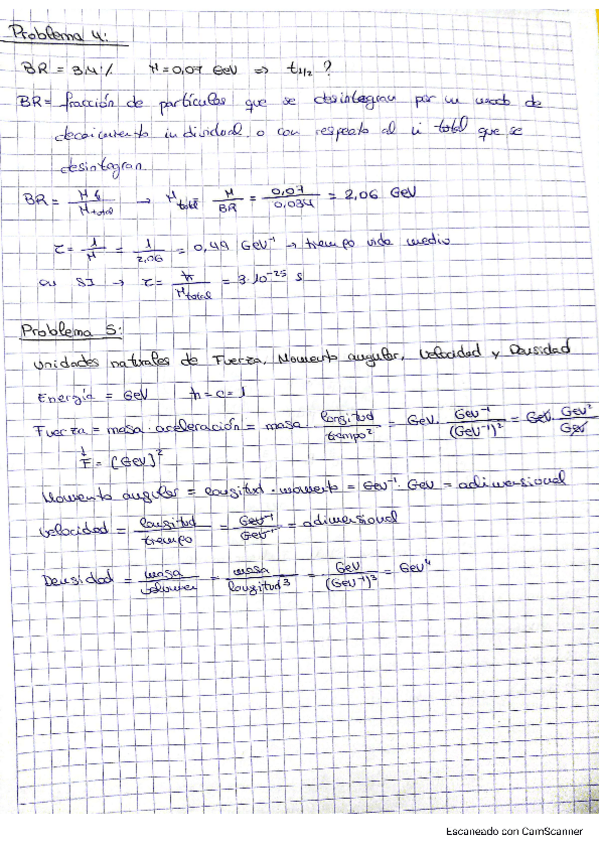 Problema 4:
BR = 3.4% Γ = 0,07 GeV ⇒ t1/2 ?
BR = fracción de partículas que se desintegran por un modo de
decaimiento individual o con respecto al nº total que se
desintegran.
BR = Γi / Γtotal → Γtotal Γ / BR = 0,07 / 0,034 = 2,06 GeV
τ = 1 / Γ = 1 / 2,06 = 0,49 GeV⁻¹ → tiempo vida medio
en SI → τ = ħ / Γtotal = 3·10⁻²⁵ s
Problema 5:
Unidades naturales de Fuerza, Momento angular, Velocidad y Densidad
Energía = GeV ħ = c = 1
Fuerza = masa · aceleración = masa · longitud / tiempo² = GeV · GeV⁻¹ / (GeV⁻¹)² = GeV · GeV² / GeV
F = [GeV]²
Momento angular = longitud · momento = GeV⁻¹ · GeV = adimensional
Velocidad = longitud / tiempo = GeV⁻¹ / GeV⁻¹ = adimensional
Densidad = masa / volumen = masa / longitud³ = GeV / (GeV⁻¹)³ = GeV⁴
Escaneado con CamScanner